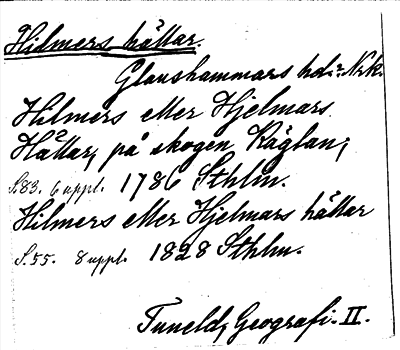 Hilmers hällar.
Glanshammars hd: Nrk.
Hilmers eller Hjelmars
Hällar, på skogen Käglan;
S.83. 6 uppl. 1786 Sthlm.
Hilmers eller Hjelmars hällar
S.55. 8 uppl. 1828 Sthlm.
Tuneld, Geografi. II.